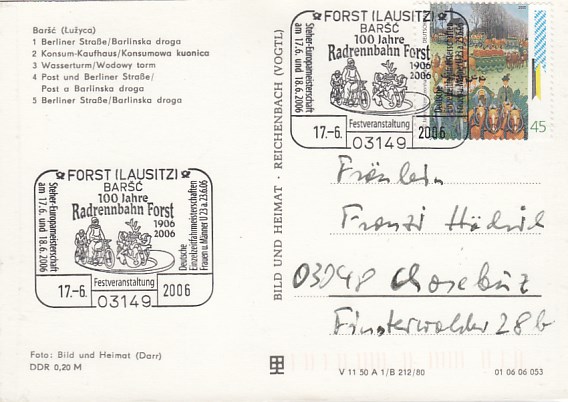 Baršć (Łužyca)
1 Berliner Straße/Barlinska droga
2 Konsum-Kaufhaus/Konsumowa kupnica
3 Wasserturm/Wodowy torm
4 Post und Berliner Straße/
Post a Barlinska droga
5 Berliner Straße/Barlinska droga
FORST (LAUSITZ)
BARŠĆ
100 Jahre
Radrennbahn Forst
1906
2006
Steher-Europameisterschaft
am 17.6. und 18.6.2006
Festveranstaltung
17.-6. 2006
03149
45
FORST (LAUSITZ)
BARŠĆ
100 Jahre
Radrennbahn Forst
1906
2006
Steher-Europameisterschaft
am 17.6. und 18.6.2006
Deutsche
Einzelzeitfahrmeisterschaften
Frauen u. Männer U 23 a. 23.6.06
Festveranstaltung
17.-6. 2006
03149
BILD UND HEIMAT · REICHENBACH (VOGTL)
Fräulein
Franzi
03048
Finsterwalder 28b
Foto: Bild und Heimat (Darr)
DDR 0,20 M
V 11 50 A 1/B 212/80
01 06 06 053